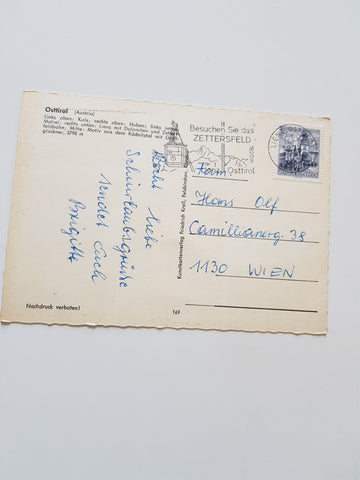 Osttirol (Austria)
Links oben: Kals; rechts oben: Huben; links unten:
Matrei; rechts unten: Lienz mit Dolomiten und Zetters-
feldbahn; Mitte: Motiv aus dem Ködnitztal mit Groß-
glockner, 3798 m
Besuchen Sie das
ZETTERSFELD
Osttirol
Recht liebe
Schiurlaubsgrüße
sendet Euch
Brigitte
Kunstkartenverlag Friedrich Kreil, Feldkirchen
Fam.
Hans Olf
Camillianerg. 38
1130 WIEN
Nachdruck verboten!
169